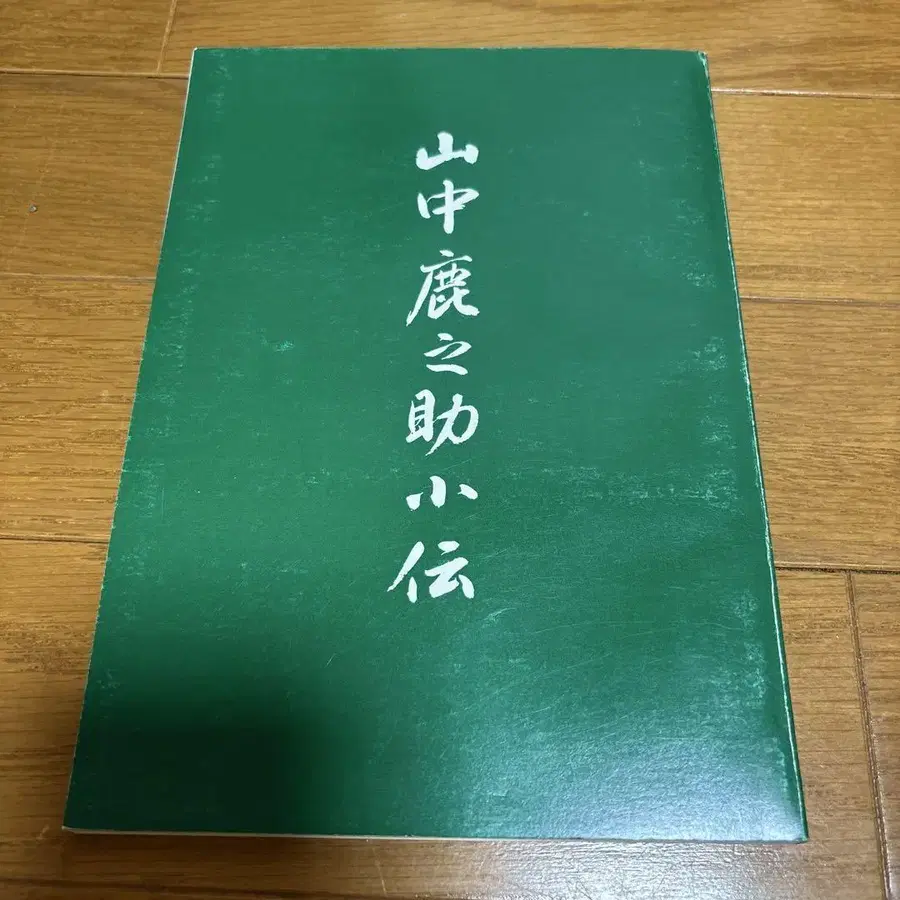 山中鹿之助小伝